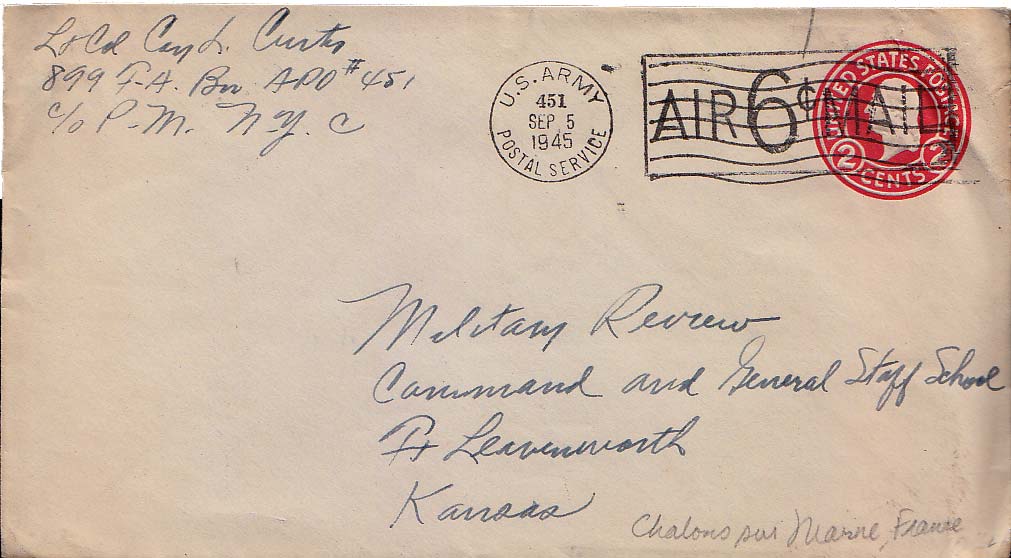 Lt Col Coy L. Curtis
899 F.A. Bn APO #451
c/o P.M. N.Y. C
U.S. ARMY
451
SEP 5
1945
POSTAL SERVICE
AIR 6¢ MAIL
UNITED STATES POSTAGE
2 CENTS 2
Military Review
Command and General Staff School
Ft Leavenworth
Kansas
Chalons sur Marne, France